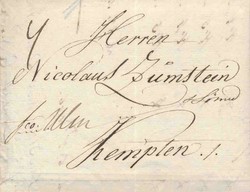 Herren
Nicolaus Zumstein
& Söhne
fco: Ulm
Kempten ./.